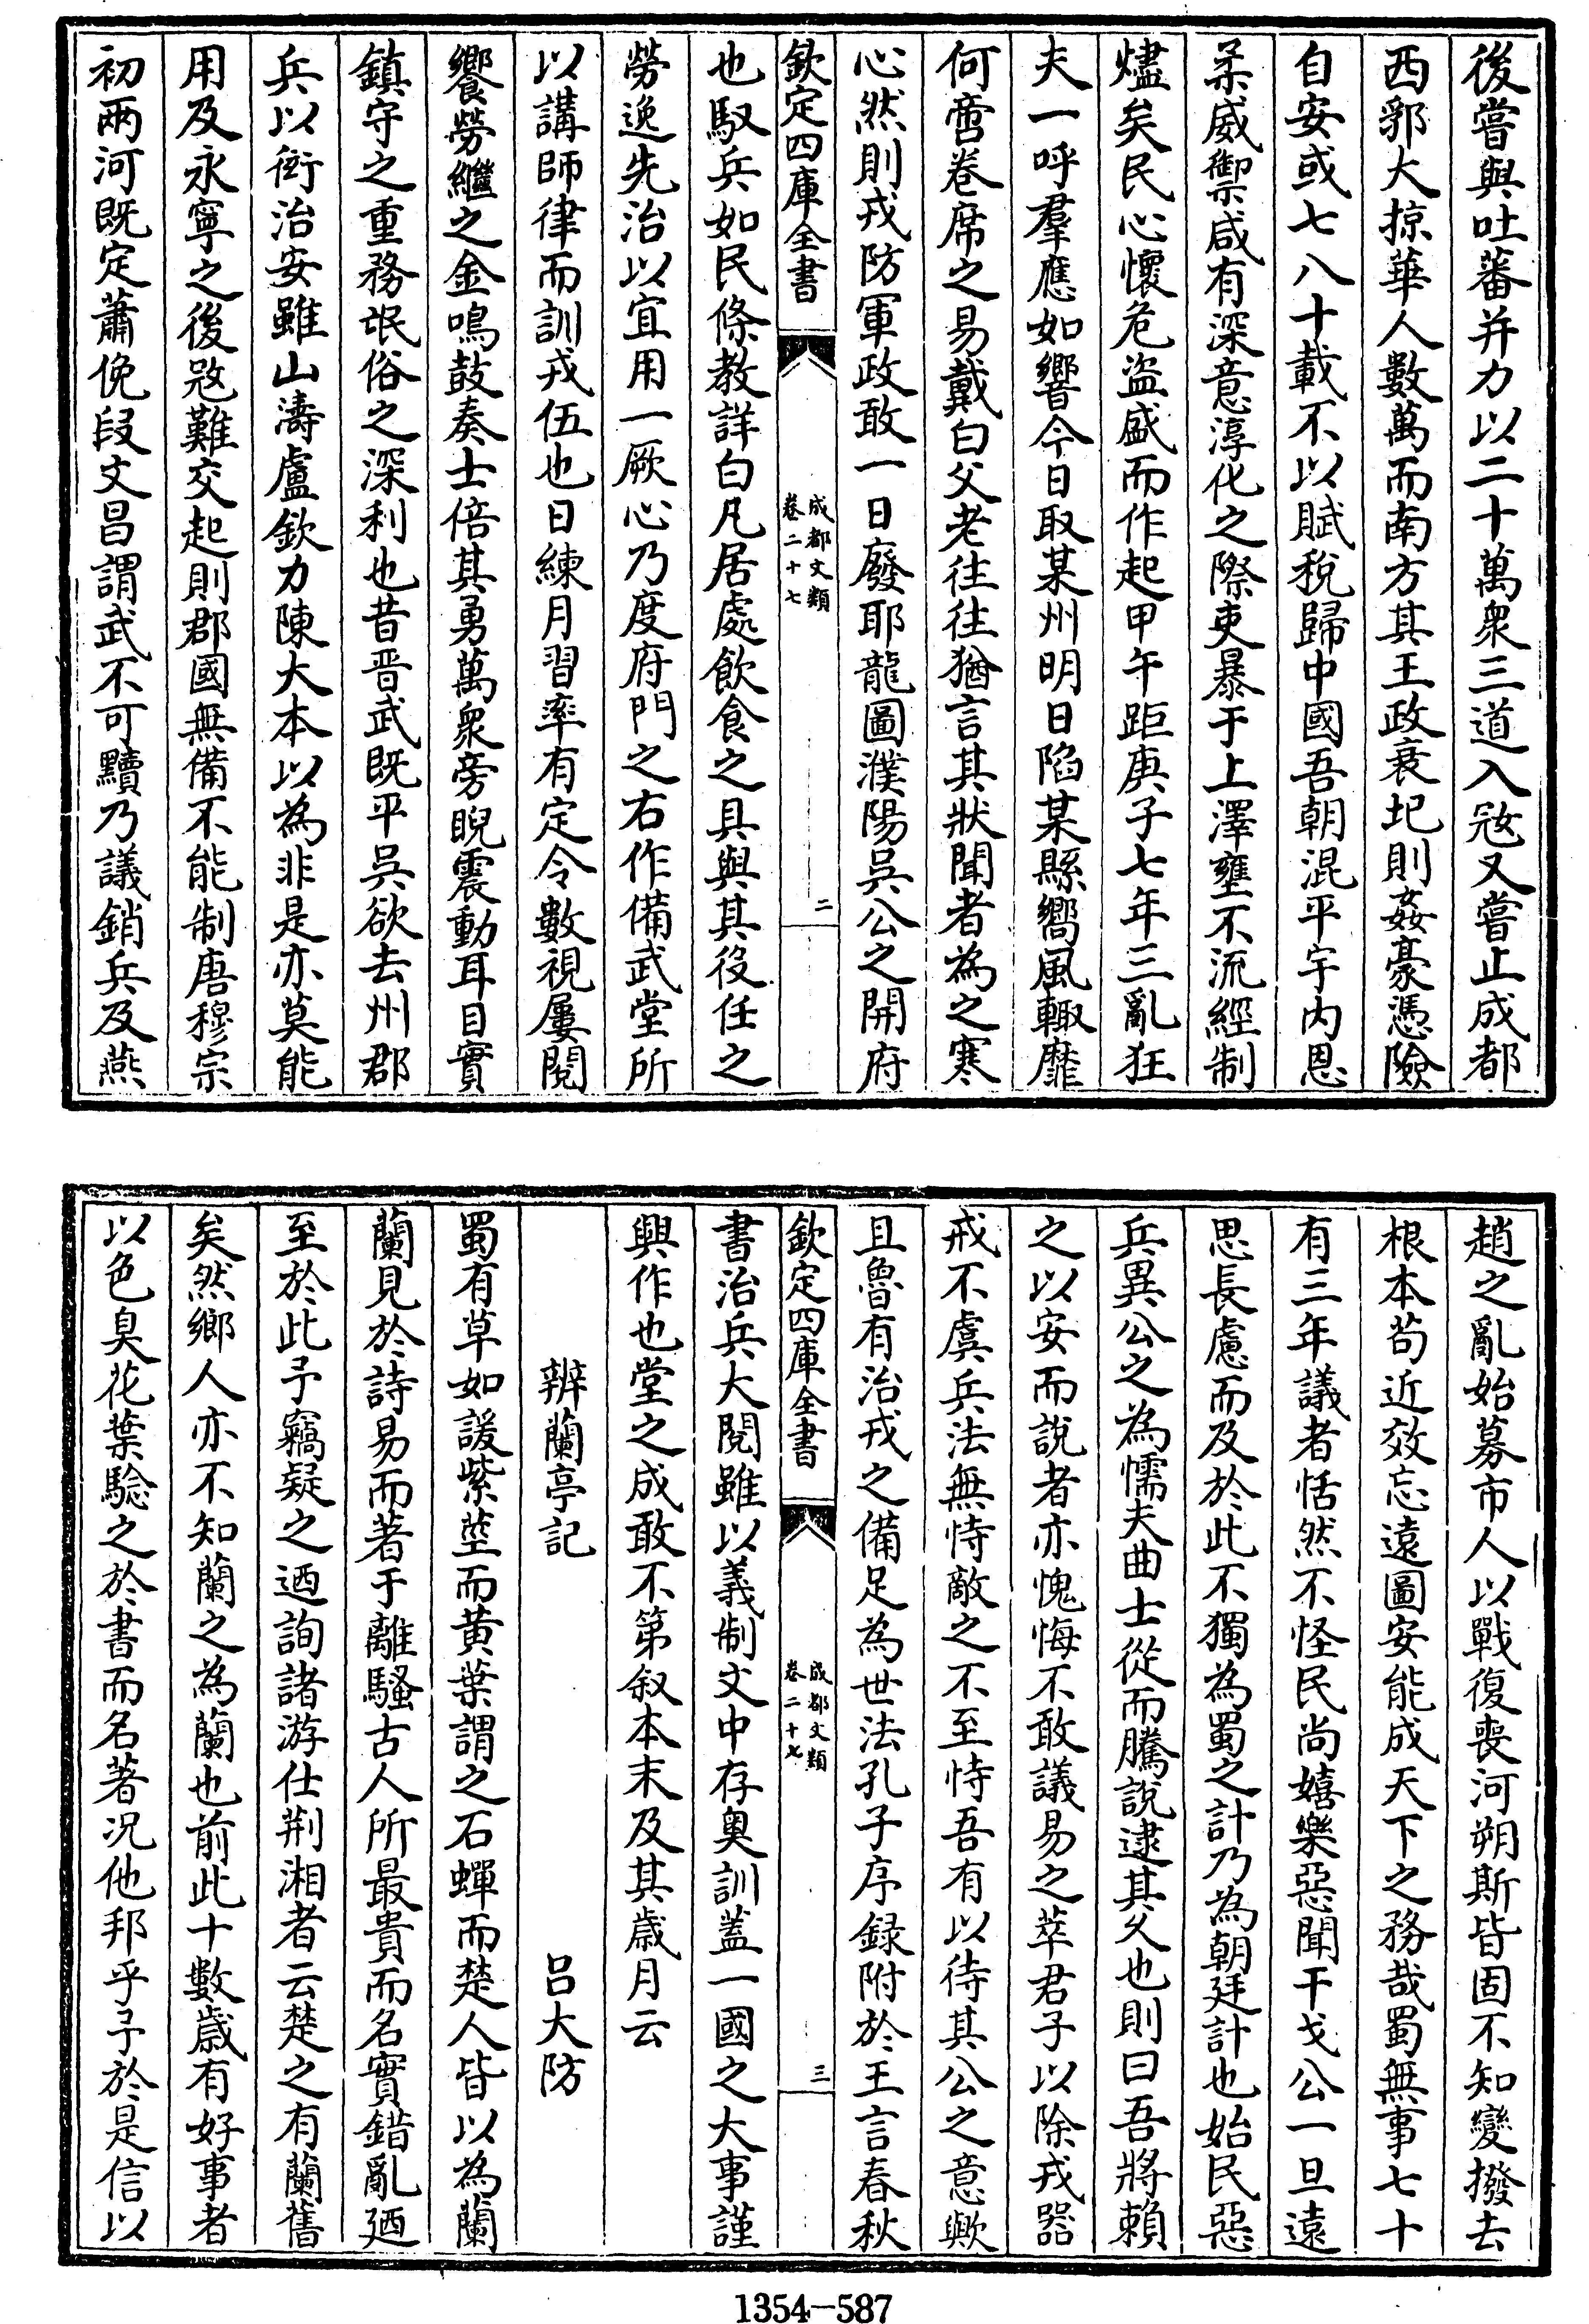 後嘗與吐蕃并力以二十萬衆三道入𡨥又嘗止成都
西郛大掠華人數萬而南方其王政衰圮則姦豪憑險
自安或七八十載不以賦稅歸中國吾朝混平宇內恩
柔威禦咸有深意淳化之際吏暴于上澤壅不流經制
燼矣民心懷危盜盛而作起甲午距庚子七年三亂狂
夫一呼羣應如響今日取某州明日陷某縣嚮風輙靡
何啻卷席之易戴白父老往往猶言其狀聞者為之寒
心然則戎防軍政敢一日廢耶龍圖濮陽吳公之開府
欽定四庫全書
成都文類
卷二十七
二
也馭兵如民條教詳白凡居處飲食之具與其役任之
勞逸先治以宜用一厥心乃度府門之右作備武堂所
以講師律而訓戎伍也日練月習率有定令數視屢閱
饗勞繼之金鳴鼓奏士倍其勇萬衆旁睨震動耳目實
鎮守之重務氓俗之深利也昔晋武既平吳欲去州郡
兵以銜治安雖山濤盧欽力陳大本以為非是亦莫能
用及永寧之後𡨥難交起則郡國無備不能制唐穆宗
初兩河既定蕭俛段文昌謂武不可黷乃議銷兵及燕
趙之亂始募市人以戰復喪河朔斯皆固不知變撥去
根本茍近效忘遠圖安能成天下之務哉蜀無事七十
有三年議者恬然不怪民尚嬉樂惡聞干戈公一旦遠
思長慮而及於此不獨為蜀之計乃為朝廷計也始民惡
兵異公之為懦夫曲士從而騰說逮其久也則曰吾將賴
之以安而說者亦愧悔不敢議易之萃君子以除戎器
戒不虞兵法無恃敵之不至恃吾有以待其公之意歟
且魯有治戎之備足為世法孔子序録附於王言春秋
欽定四庫全書
成都文類
卷二十七
三
書治兵大閱雖以義制文中存奧訓蓋一國之大事謹
興作也堂之成敢不第叙本末及其歲月云
辨蘭亭記 吕大防
蜀有草如諼紫莖而黄葉謂之石蟬而楚人皆以為蘭
蘭見於詩易而著于離騷古人所最貴而名實錯亂廼
至於此予竊疑之迺詢諸游仕荆湘者云楚之有蘭舊
矣然鄉人亦不知蘭之為蘭也前此十數歲有好事者
以色臭花葉驗之於書而名著况他邦乎予於是信以
1354-587